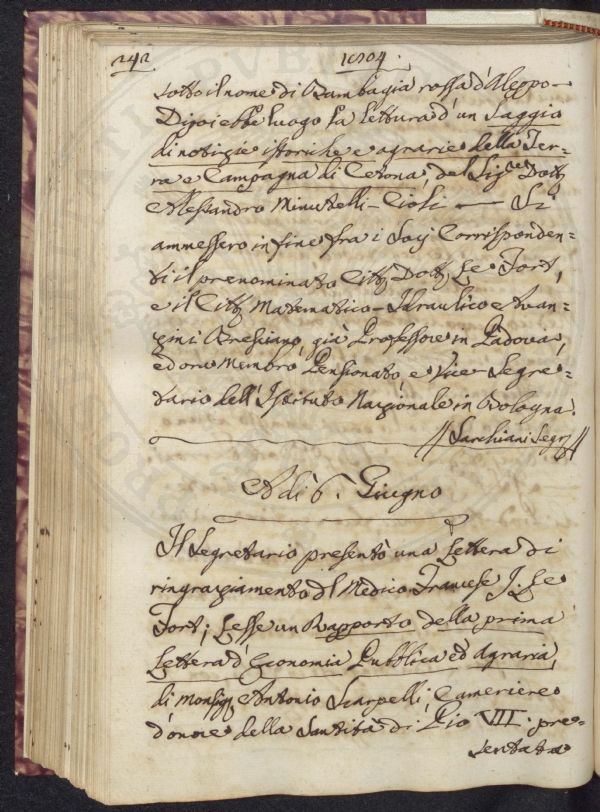 242
1804.
sotto il nome di Bambagia rossa d'Aleppo —
Dipoi ebbe luogo la lettura d'un Saggio
di notizie istoriche e agrarie della Ter=
ra e Campagna di Cetona, del Sigre Dott
Alessandro Minutelli-Cioli — Si
ammessero in fine fra i Socj Corrisponden=
ti il prenominato Citt Dott Le Fort,
e il Citt Matematico-Idraulico Avan=
zini Bresciano, già Professore in Padova,
ed ora Membro Pensionato, e Vice Segre=
tario dell'Istituto Nazionale in Bologna.
Sarchiani Segr
A dì 6. Giugno
Il Segretario presentò una Lettera di
ringraziamento del Medico Francese J. Le
Fort; Lesse un Rapporto della prima
Lettera d'Economia Pubblica ed Agraria,
di Monsig Antonio Scarpelli, Cameriere
d'onore della Santità di Pio VII. pre=
sentata